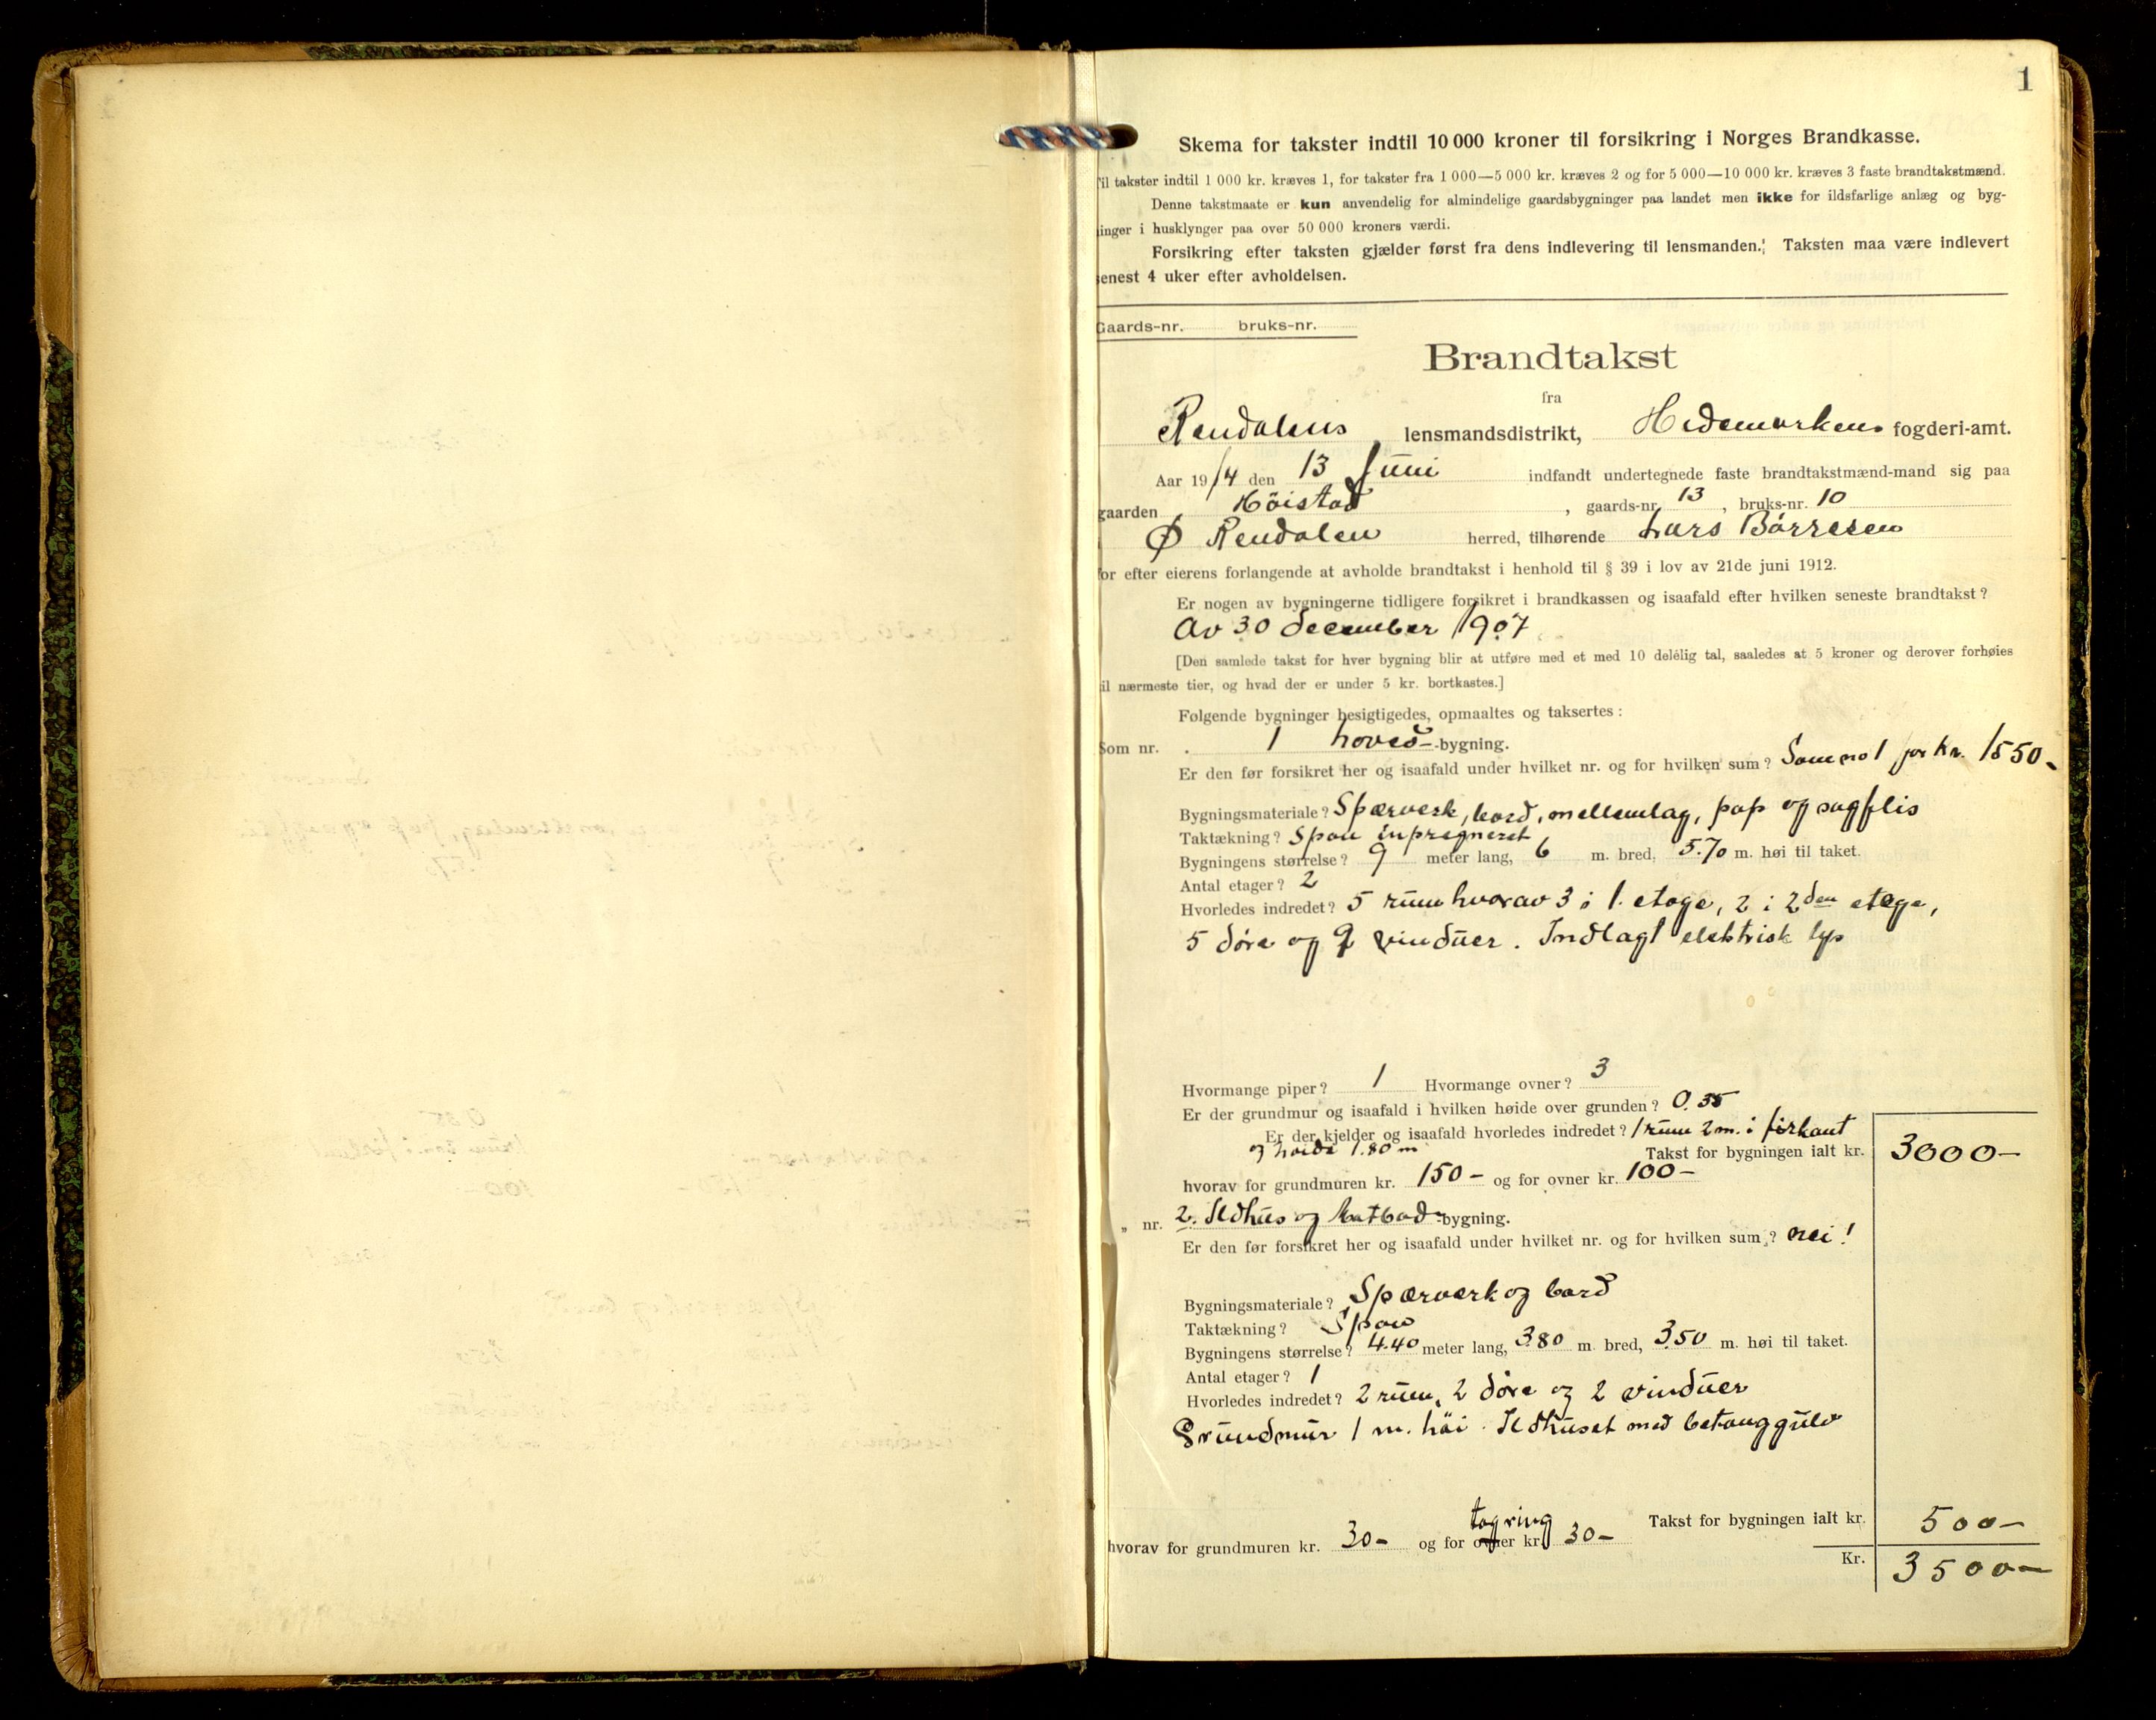 1
Skema for takster indtil 10 000 kroner til forsikring i Norges Brandkasse.
il takster indtil 1 000 kr. kræves 1, for takster fra 1 000—5 000 kr. kræves 2 og for 5 000—10 000 kr. kræves 3 faste brandtakstmænd.
Denne takstmaate er kun anvendelig for almindelige gaardsbygninger paa landet men ikke for ildsfarlige anlæg og byg-
inger i husklynger paa over 50 000 kroners værdi.
Forsikring efter taksten gjælder først fra dens indlevering til lensmanden. Taksten maa være indlevert
enest 4 uker efter avholdelsen.
Gaards-nr. bruks-nr.
Brandtakst
fra
Rendalens lensmandsdistrikt, Hedemarkens fogderi-amt.
Aar 1914 den 13 Juni indfandt undertegnede faste brandtakstmænd-mand sig paa
gaarden Höistad, gaards-nr. 13, bruks-nr. 10
Ø Rendalen herred, tilhørende Lars Börresen
or efter eierens forlangende at avholde brandtakst i henhold til § 39 i lov av 21de juni 1912.
Er nogen av bygningerne tidligere forsikret i brandkassen og isaafald efter hvilken seneste brandtakst?
Av 30 december 1907
[Den samlede takst for hver bygning blir at utføre med et med 10 delelig tal, saaledes at 5 kroner og derover forhøies
il nærmeste tier, og hvad der er under 5 kr. bortkastes.]
Følgende bygninger besigtigedes, opmaaltes og taksertes:
Som nr. 1 hoved-bygning.
Er den før forsikret her og isaafald under hvilket nr. og for hvilken sum? Som no 1 for kr. 1550-
Bygningsmateriale? Spærverk, bord, mellemlag, pap og sagflis
Taktækning? Spon inpregneret
Bygningens størrelse? 9 meter lang, 6 m. bred, 5.70 m. høi til taket.
Antal etager? 2
Hvorledes indredet? 5 rum hvorav 3 i 1. etage, 2 i 2den etage,
5 döre og 9 vinduer. Indlagt elektrisk lys
Hvormange piper? 1 Hvormange ovner? 3
Er der grundmur og isaafald i hvilken høide over grunden? 0.35
Er der kjelder og isaafald hvorledes indredet? 1 rum 2 m. i firkant
og höide 1.80 m Takst for bygningen ialt kr. 3000-
hvorav for grundmuren kr. 150- og for ovner kr. 100-
„ nr. 2. Ildhus og Matbod-bygning.
Er den før forsikret her og isaafald under hvilket nr. og for hvilken sum? nei!
Bygningsmateriale? Spærverk og bord
Taktækning? Spon
Bygningens størrelse? 4.40 meter lang, 3.80 m. bred, 3.50 m. høi til taket.
Antal etager? 1
Hvorledes indredet? 2 rum, 2 döre og 2 vinduer
Grundmur 1 m. höi. Ildhuset med betonggulv
tagring Takst for bygningen ialt kr. 500-
hvorav for grundmuren kr. 30- og for ovner kr. 30-
Kr. 3500-